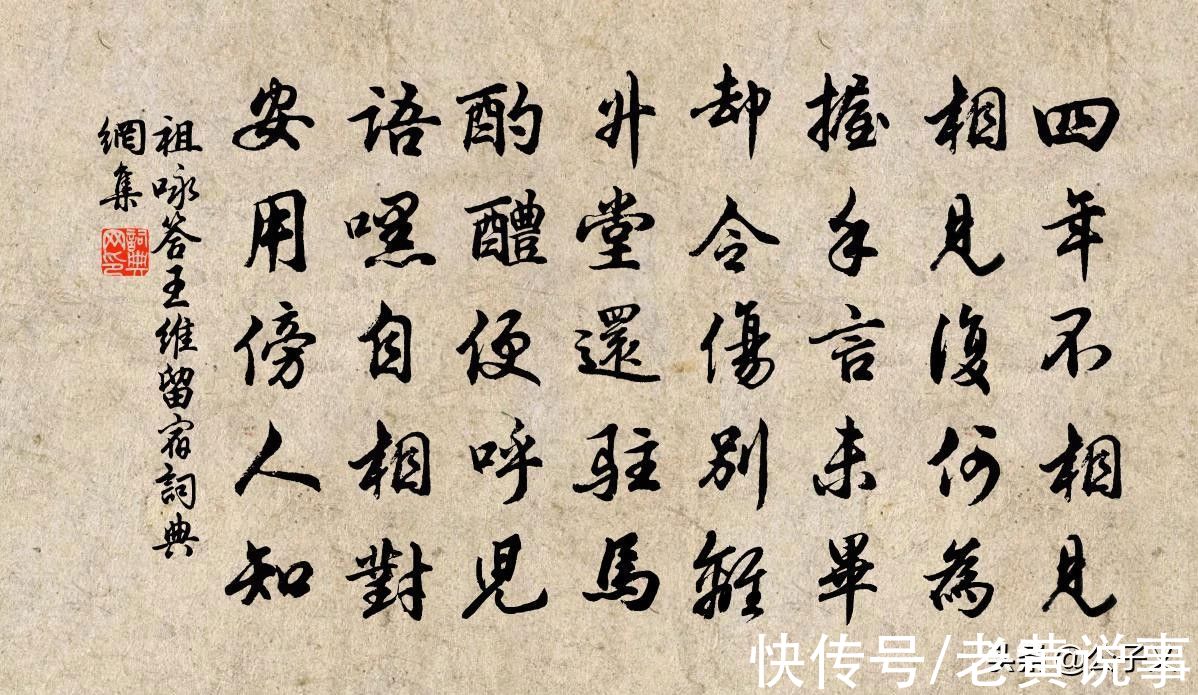 四年不相見
相見復何為
握手言未畢
却令傷別離
升堂還駐馬
酌醴便呼兒
語嘿自相對
安用傍人知
祖咏答王維留宿詞典
網集
詞典
网印
快传号/老黄说事